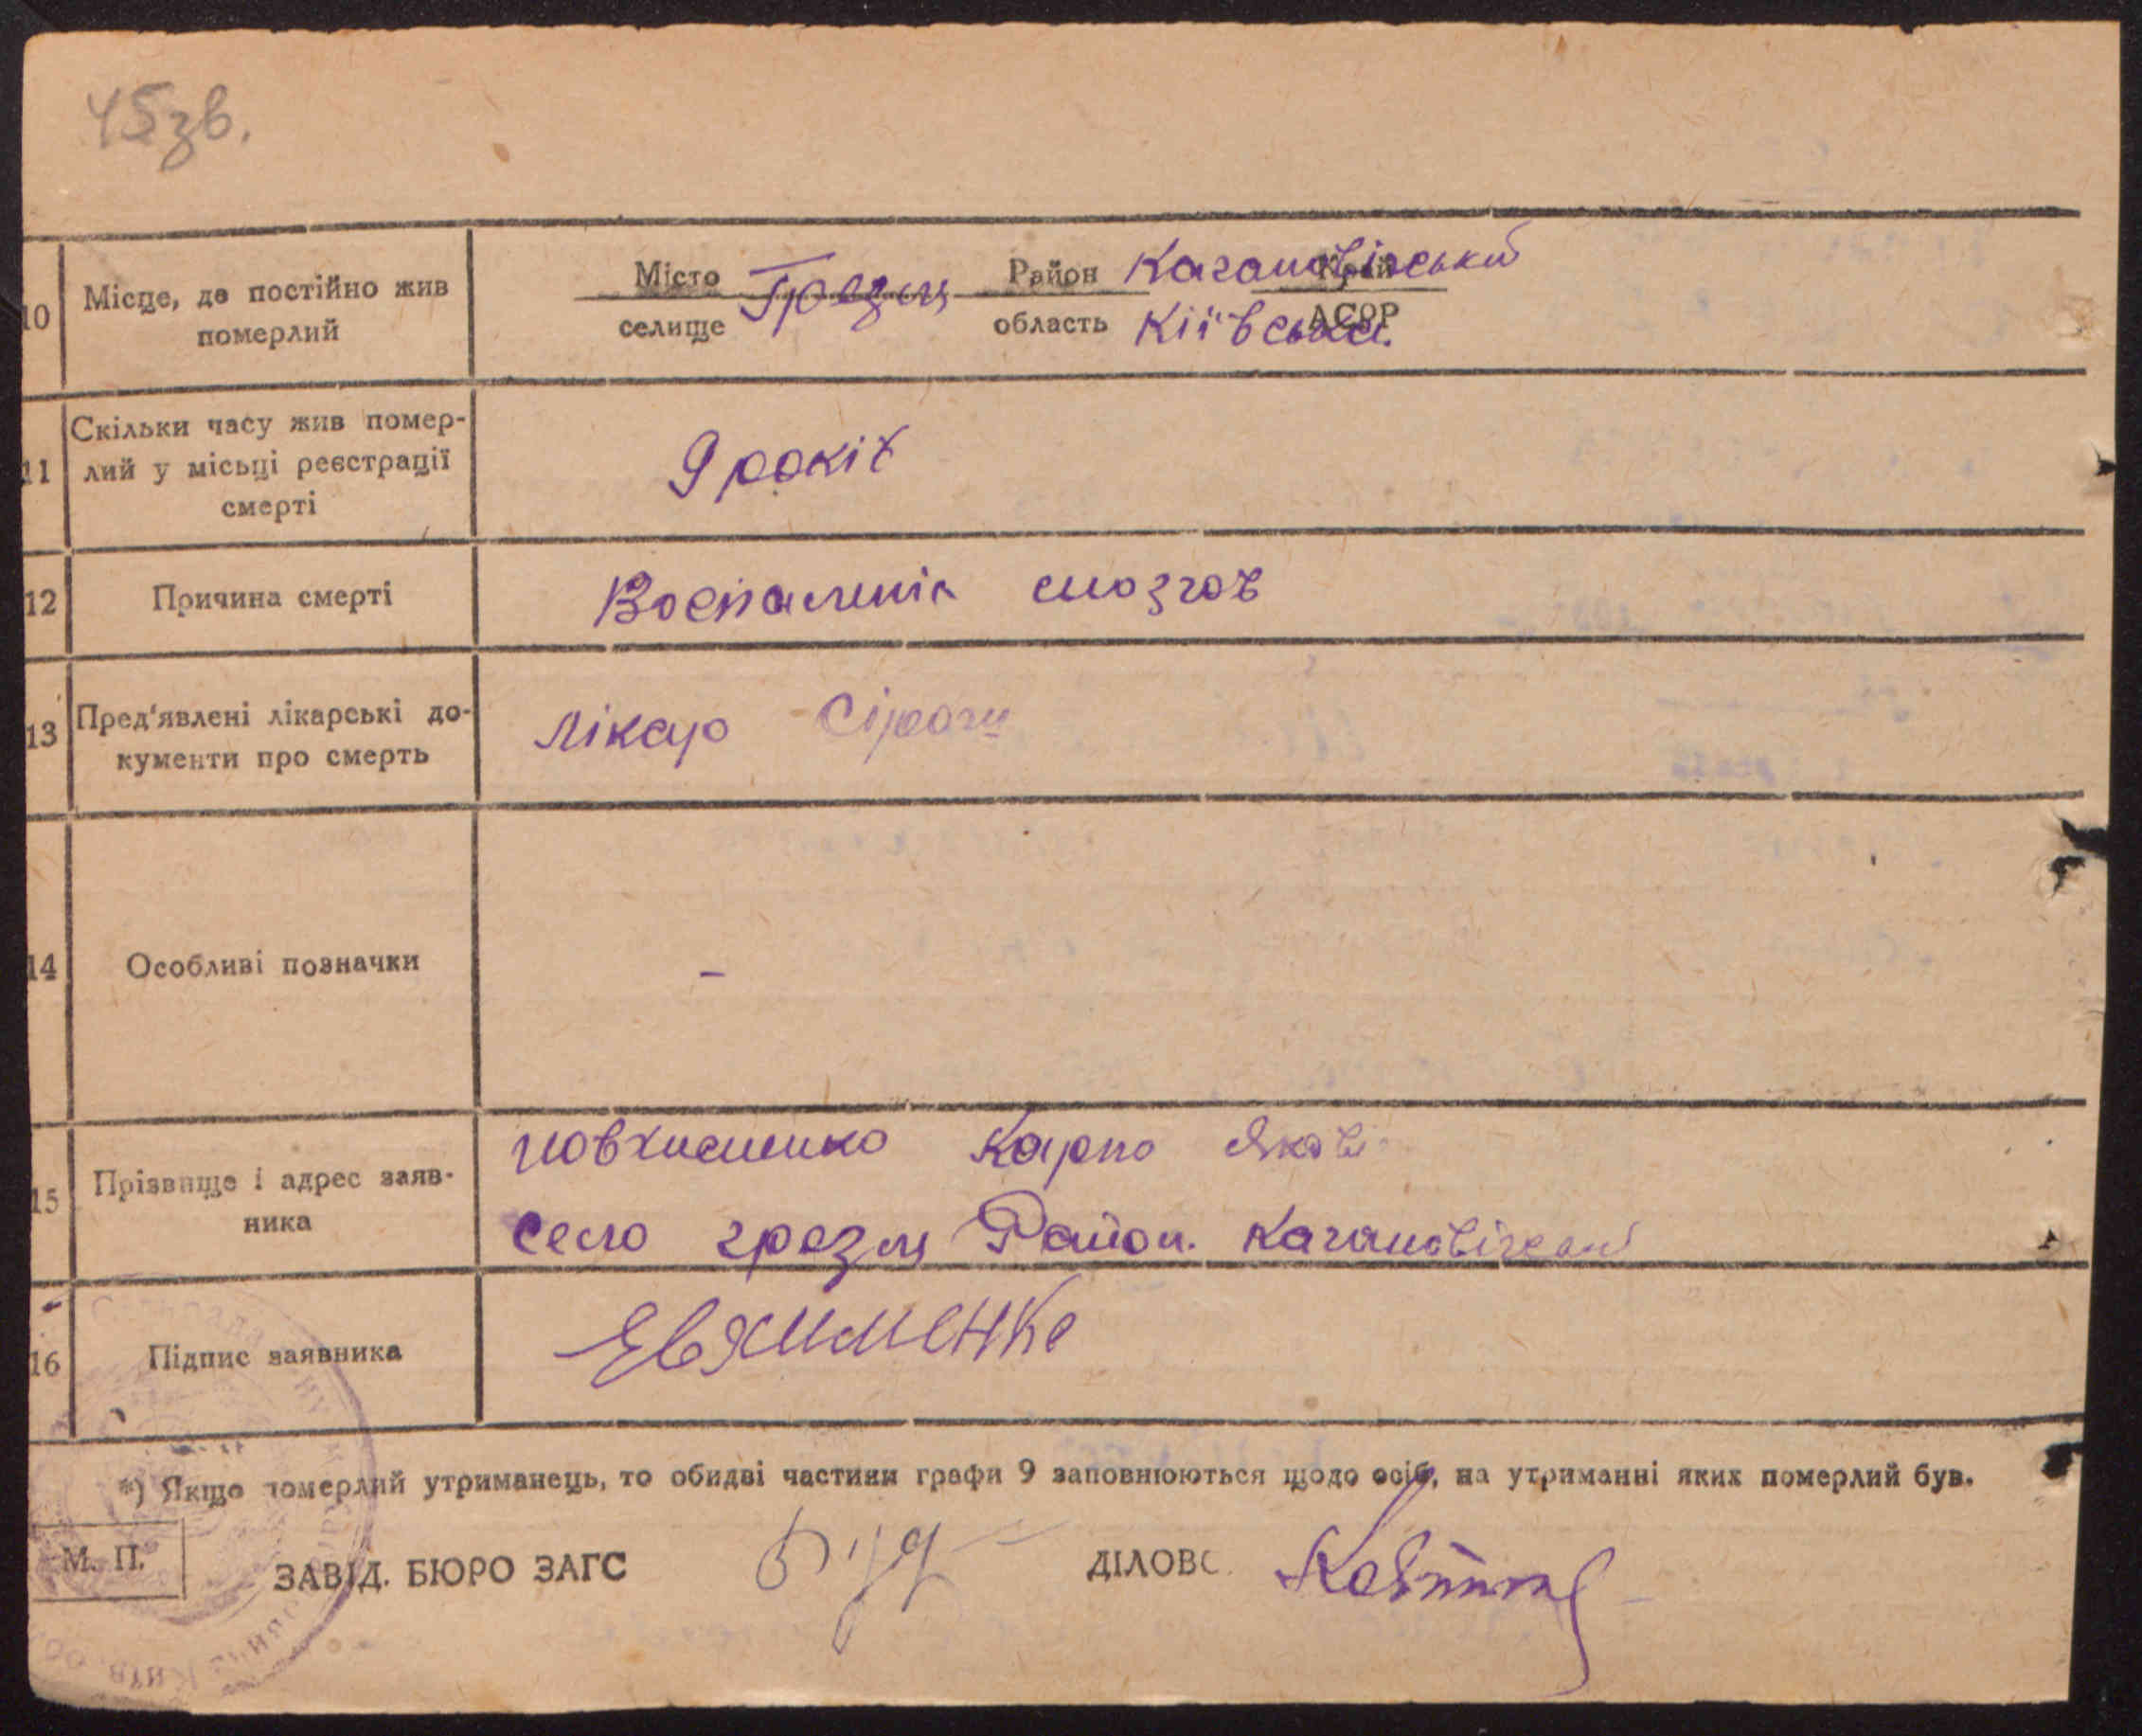 45зв.
10 Місце, де постійно жив померлий
Місто Грезля Район Кагановіческий Край
селище область Кіївська. АСРР
11 Скільки часу жив помер-
лий у місьці реєстрації
смерті
9 років
12 Причина смерті
Воспаленія мозгов
13 Пред'явлені лікарські до-
кументи про смерть
лікар
14 Особливі позначки
-
15 Прізвище і адрес заяв-
ника
Карпо Якові
село грезля Район.
16 Підпис заявника
Евхименко
*) Якщо померлий утриманець, то обидві частини графи 9 заповнюються щодо осіб, на утриманні яких померлий був.
М. П.
ЗАВІД. БЮРО ЗАГС
ДІЛОВС